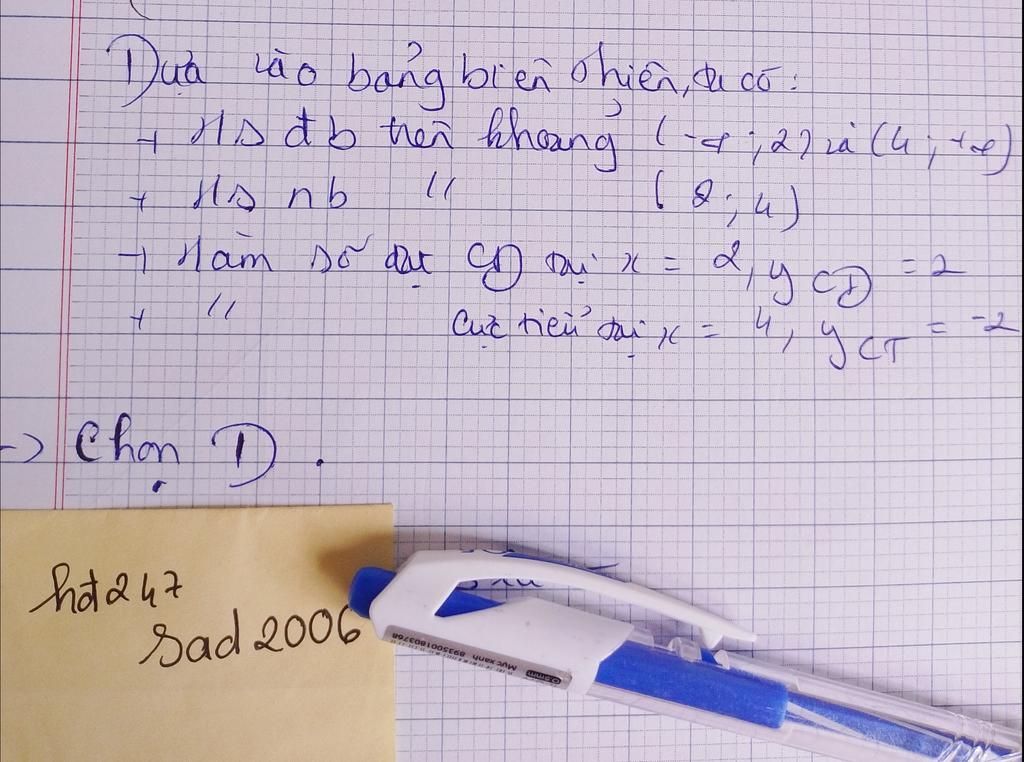 Dựa vào bảng biến thiên, ta có:
+ HS đb trên khoảng (-∞; 2) và (4; +∞)
+ HS nb " (2; 4)
+ Hàm số đạt CĐ tại x = 2, y CĐ = 2
+ " cực tiểu tại x = 4, y CT = -2
-> Chọn D.
hđ247
sad2006
0.5mm
Mực xanh 8935001803768